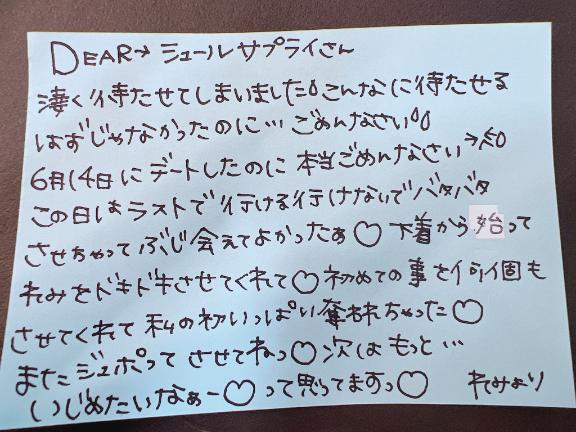 DEAR→シュールサプライさん
凄く待たせてしまいました💧こんなに待たせる
はずじゃなかったのに…ごめんなさい💧💧
6月14日にデートしたのに本当ごめんなさい→
この日はラストで行ける行けないでバタバタ
させちゃってぶじ会えてよかったぁ♡下着から始って
れみをドキドキさせてくれて♡初めての事を何個も
させてくれて私の初いっぱい奪われちゃった♡
またジュポってさせてねっ♡次はもっと…
いじめたいなぁー♡って思ってますっ♡ れみより